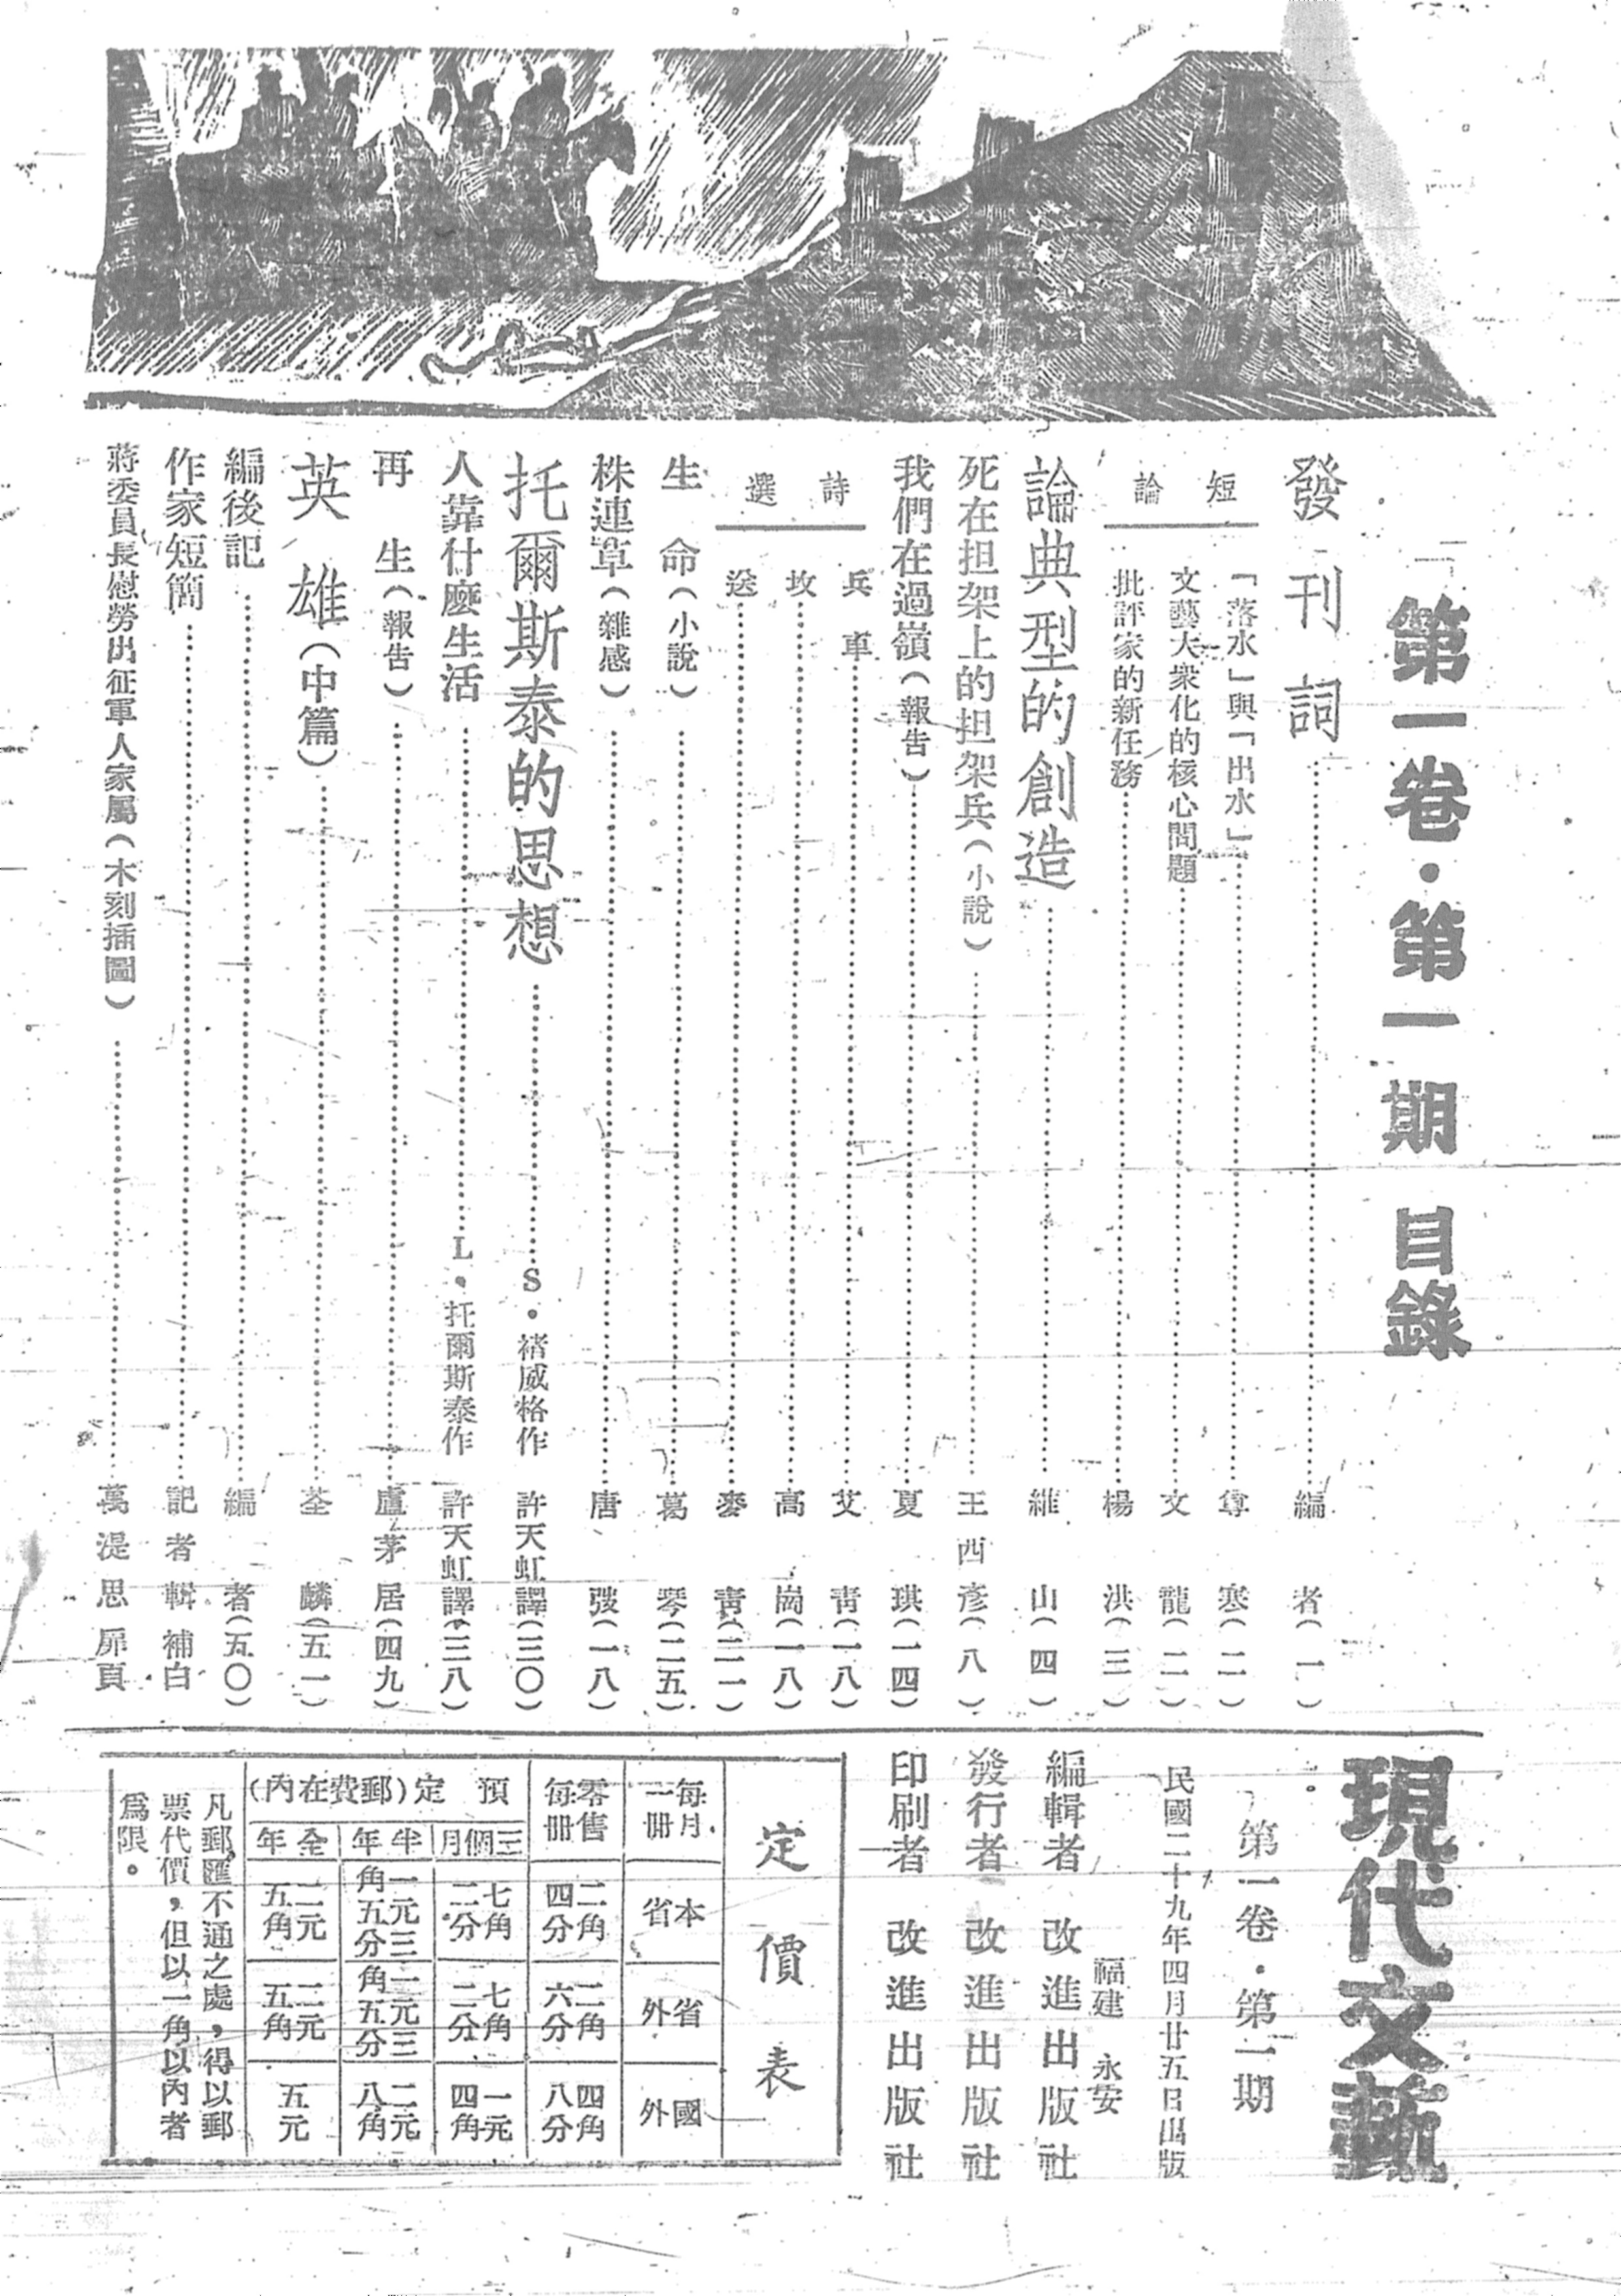 第一卷・第一期 目錄
發刊詞 編者(一)
短論
「落水」與「出水」 尊塞(二)
文藝大衆化的核心問題 文龍(二)
批評家的新任務 楊洪(三)
論典型的創造 維山(四)
死在担架上的担架兵(小說) 王西彥(八)
我們在過嶺(報告) 夏琪(一四)
詩選
兵車 艾靑(一八)
坟 高崗(一八)
送 麥靑(二一)
生命(小說) 葛琴(二五)
株連草(雜感) 唐弢(一八)
托爾斯泰的思想 S・褚威格作 許天虹譯(三〇)
人靠什麼生活 L・托爾斯泰作 許天虹譯(三八)
再生(報告) 盧茅居(四九)
英雄(中篇) 荃麟(五一)
編後記 編者(五〇)
作家短簡 記者輯 補白
蔣委員長慰勞出征軍人家屬(木刻插圖) 萬湜思 扉頁
現代文藝
第一卷・第一期
民國二十九年四月廿五日出版
福建 永安
編輯者 改進出版社
發行者 改進出版社
印刷者 改進出版社
定價表
每月一冊 零售每冊 預定(郵費在內)
三個月 半年 全年
本省 二角四分 七角二分 一元三角五分 二元五角
省外 二角六分 七角二分 一元三角五分 二元五角
國外 四角八分 一元四角 二元八角 五元
凡郵匯不通之處,得以郵
票代價,但以一角以內者
爲限。